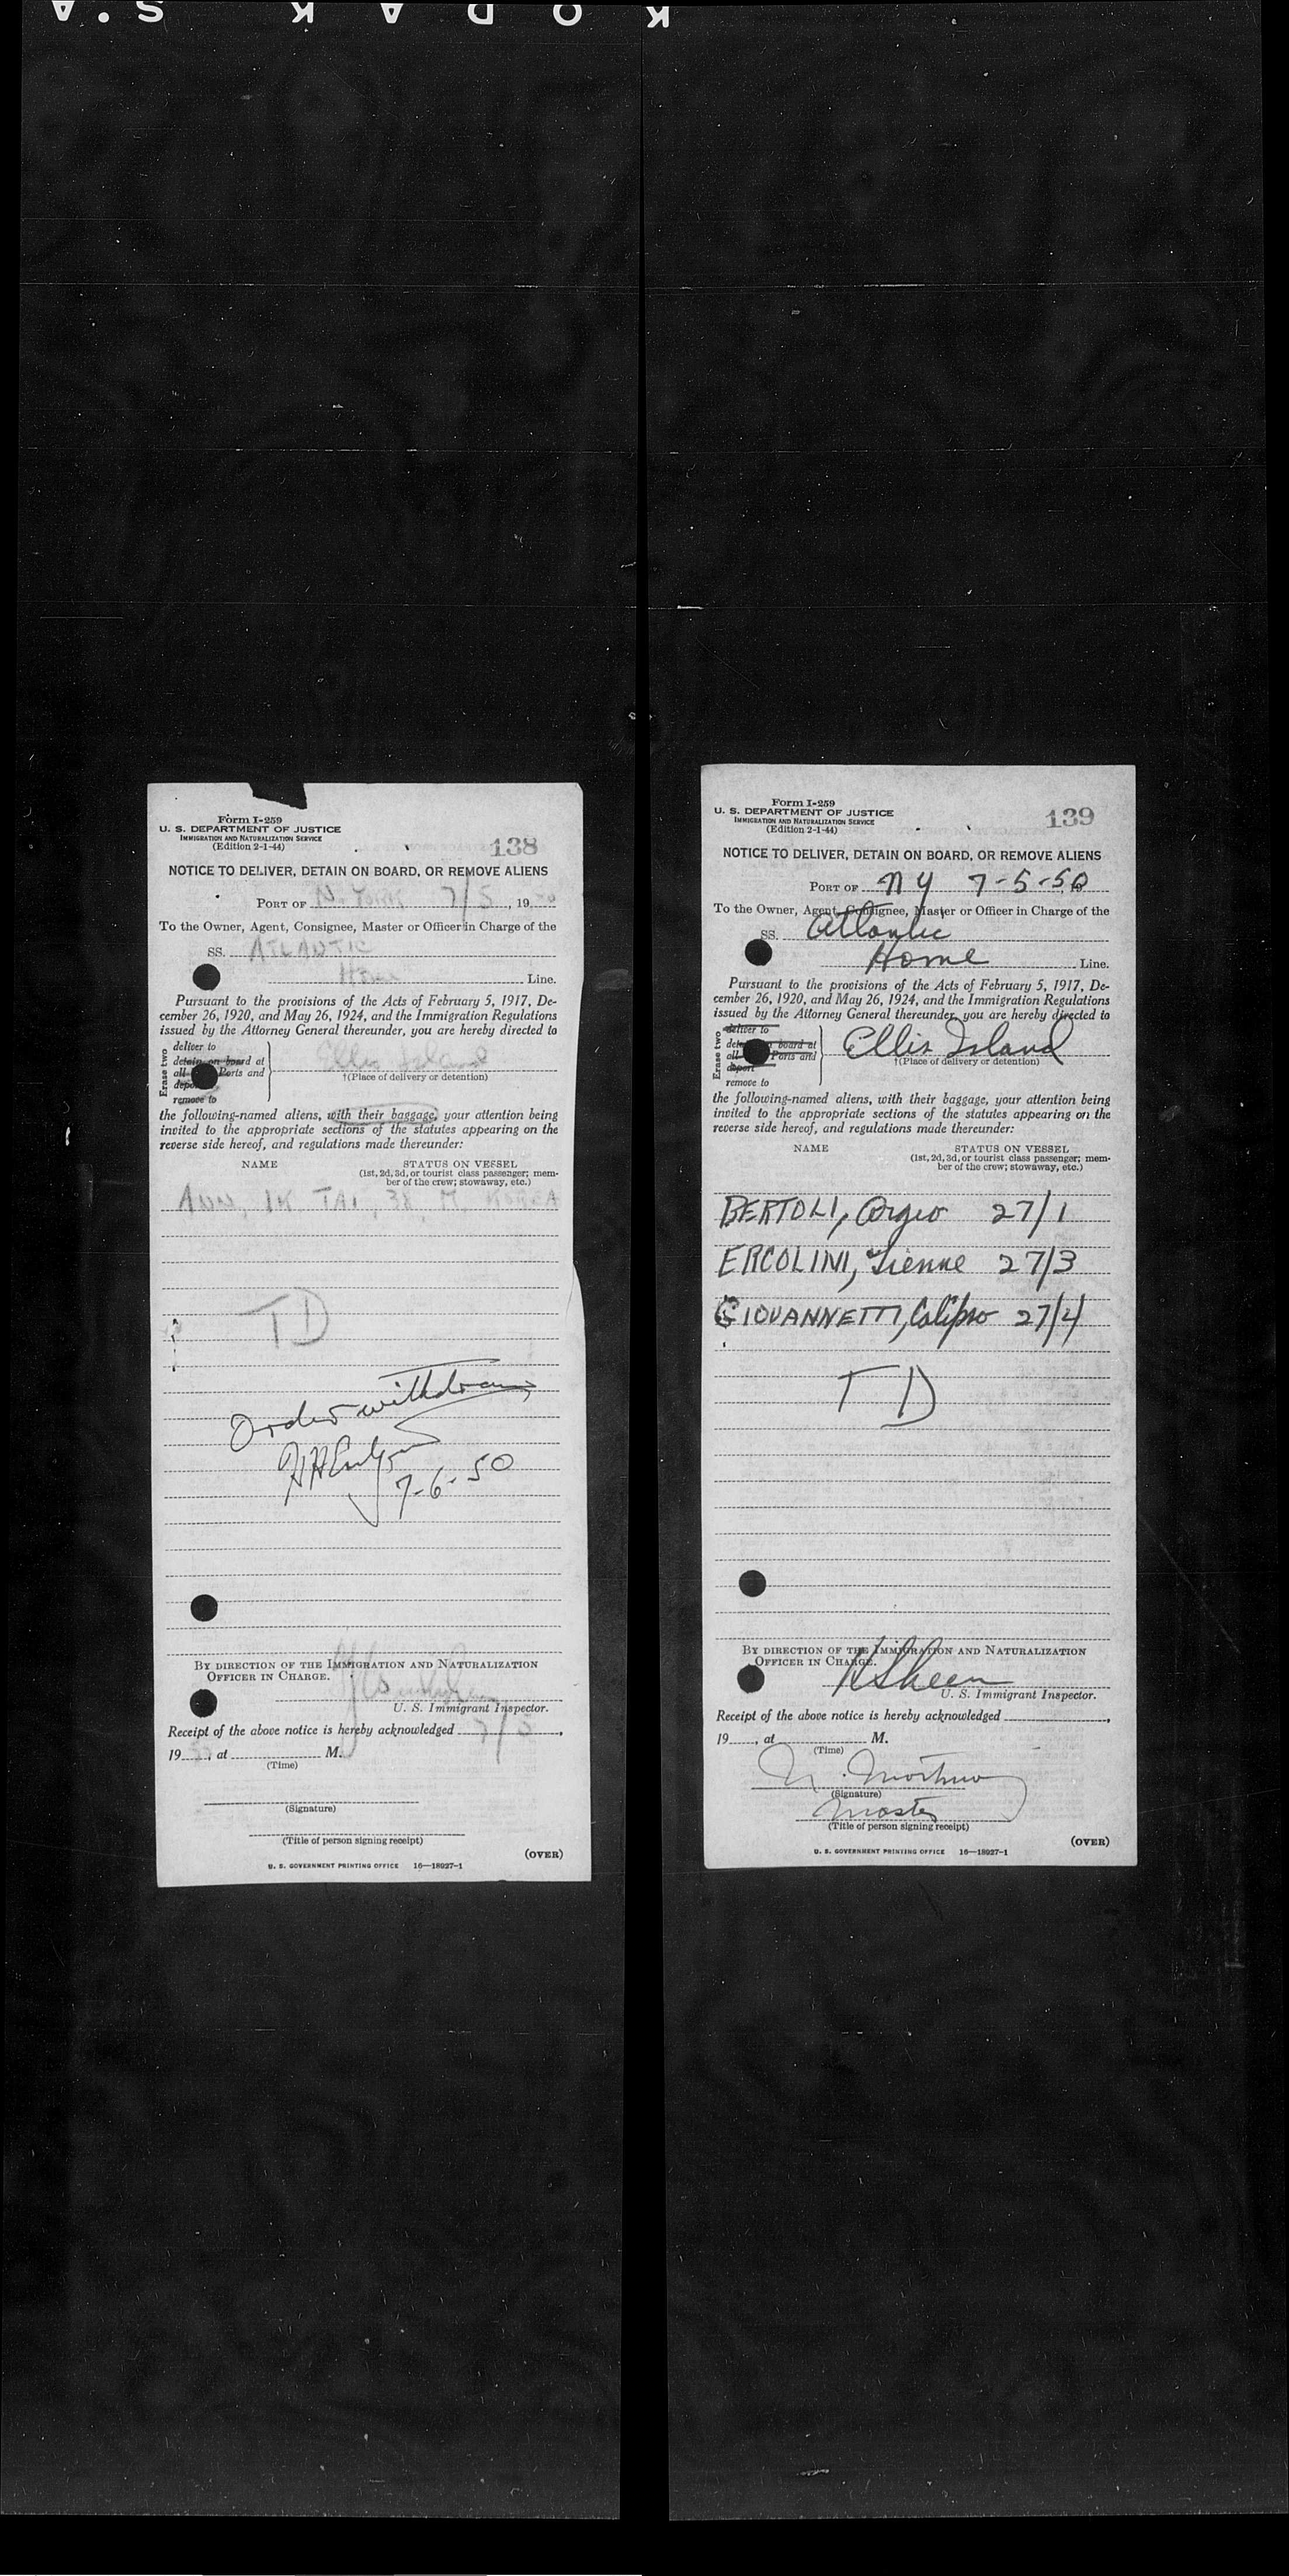 KODAK S.A.
Form I-259
U. S. DEPARTMENT OF JUSTICE
IMMIGRATION AND NATURALIZATION SERVICE
(Edition 2-1-44)
138
NOTICE TO DELIVER, DETAIN ON BOARD, OR REMOVE ALIENS
PORT OF N. York 7/5, 1950
To the Owner, Agent, Consignee, Master or Officer in Charge of the
SS. ATLANTIC
Home Line.
Pursuant to the provisions of the Acts of February 5, 1917, De-
cember 26, 1920, and May 26, 1924, and the Immigration Regulations
issued by the Attorney General thereunder, you are hereby directed to
Erase two
deliver to
detain on board at
all Ports and
depor
remove to
Ellis Island
†(Place of delivery or detention)
the following-named aliens, with their baggage, your attention being
invited to the appropriate sections of the statutes appearing on the
reverse side hereof, and regulations made thereunder:
NAME STATUS ON VESSEL
(1st, 2d, 3d, or tourist class passenger; mem-
ber of the crew; stowaway, etc.)
IK TAI, 38, M. KOREA
TD
Order withdrawn
7-6-50
BY DIRECTION OF THE IMMIGRATION AND NATURALIZATION
OFFICER IN CHARGE.
U. S. Immigrant Inspector.
Receipt of the above notice is hereby acknowledged 7/5,
19 50, at M.
(Time)
(Signature)
(Title of person signing receipt)
(OVER)
U. S. GOVERNMENT PRINTING OFFICE 16—18927-1
Form I-259
U. S. DEPARTMENT OF JUSTICE
IMMIGRATION AND NATURALIZATION SERVICE
(Edition 2-1-44)
139
NOTICE TO DELIVER, DETAIN ON BOARD, OR REMOVE ALIENS
PORT OF NY 7-5-50, 19
To the Owner, Agent, Consignee, Master or Officer in Charge of the
SS. Atlantic
Home Line.
Pursuant to the provisions of the Acts of February 5, 1917, De-
cember 26, 1920, and May 26, 1924, and the Immigration Regulations
issued by the Attorney General thereunder, you are hereby directed to
Erase two
deliver to
detain on board at
all Ports and
deport
remove to
Ellis Island
†(Place of delivery or detention)
the following-named aliens, with their baggage, your attention being
invited to the appropriate sections of the statutes appearing on the
reverse side hereof, and regulations made thereunder:
NAME STATUS ON VESSEL
(1st, 2d, 3d, or tourist class passenger; mem-
ber of the crew; stowaway, etc.)
BERTOLI, 27/1
ERCOLINI, 27/3
GIOVANNETTI, Calipso 27/4
TD
BY DIRECTION OF THE IMMIGRATION AND NATURALIZATION
OFFICER IN CHARGE.
U. S. Immigrant Inspector.
Receipt of the above notice is hereby acknowledged ,
19 , at M.
(Time)
(Signature)
Master
(Title of person signing receipt)
(OVER)
U. S. GOVERNMENT PRINTING OFFICE 16—18927-1